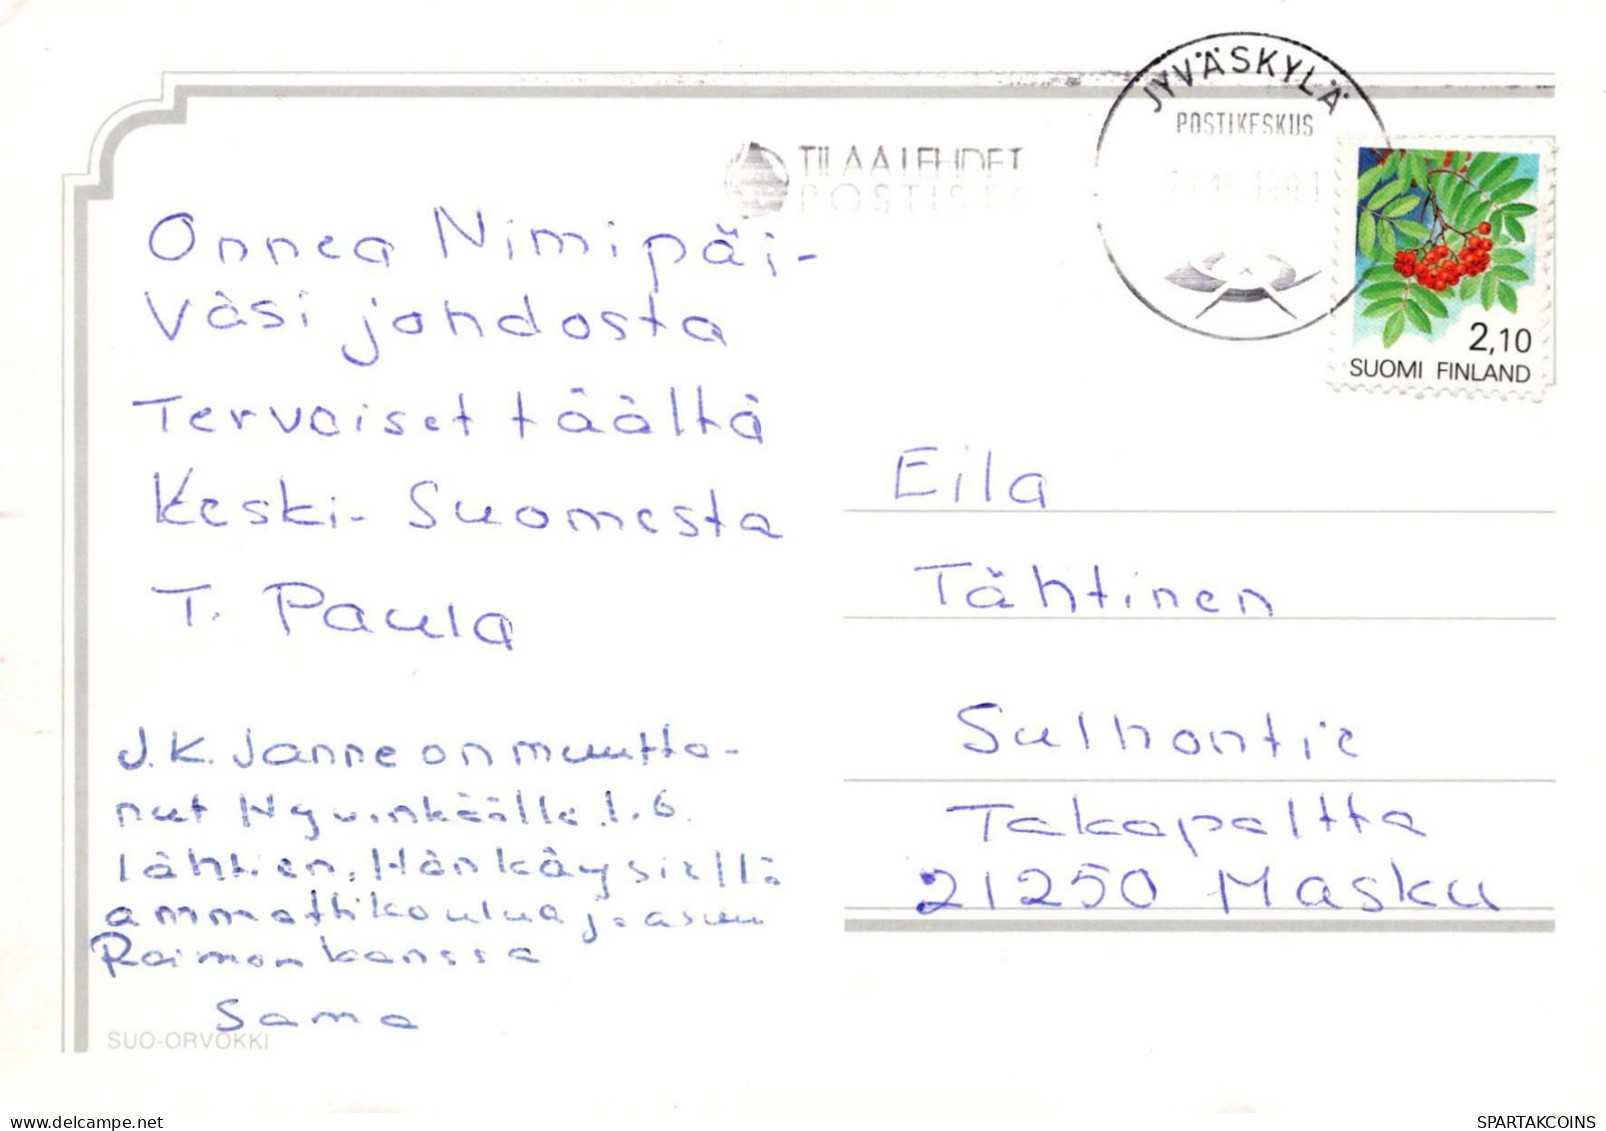 JYVÄSKYLÄ
POSTIKESKUS
TILAA LEHDET
POSTISTA
2,10
SUOMI FINLAND
Onnea Nimipäi-
väsi johdosta
Terveiset täältä
Keski-Suomesta
T. Paula
J.K. Janne on muutta-
nut Hyvinkäälle 1.6.
lähtien. Hän käy siellä
ammattikoulua ja asuu
Raimon kanssa
Sama
SUO-ORVOKKI
Eila
Tähtinen
Sulhontie
Takapaltta
21250 Masku
SPARTAKCOINS
delcampe.net